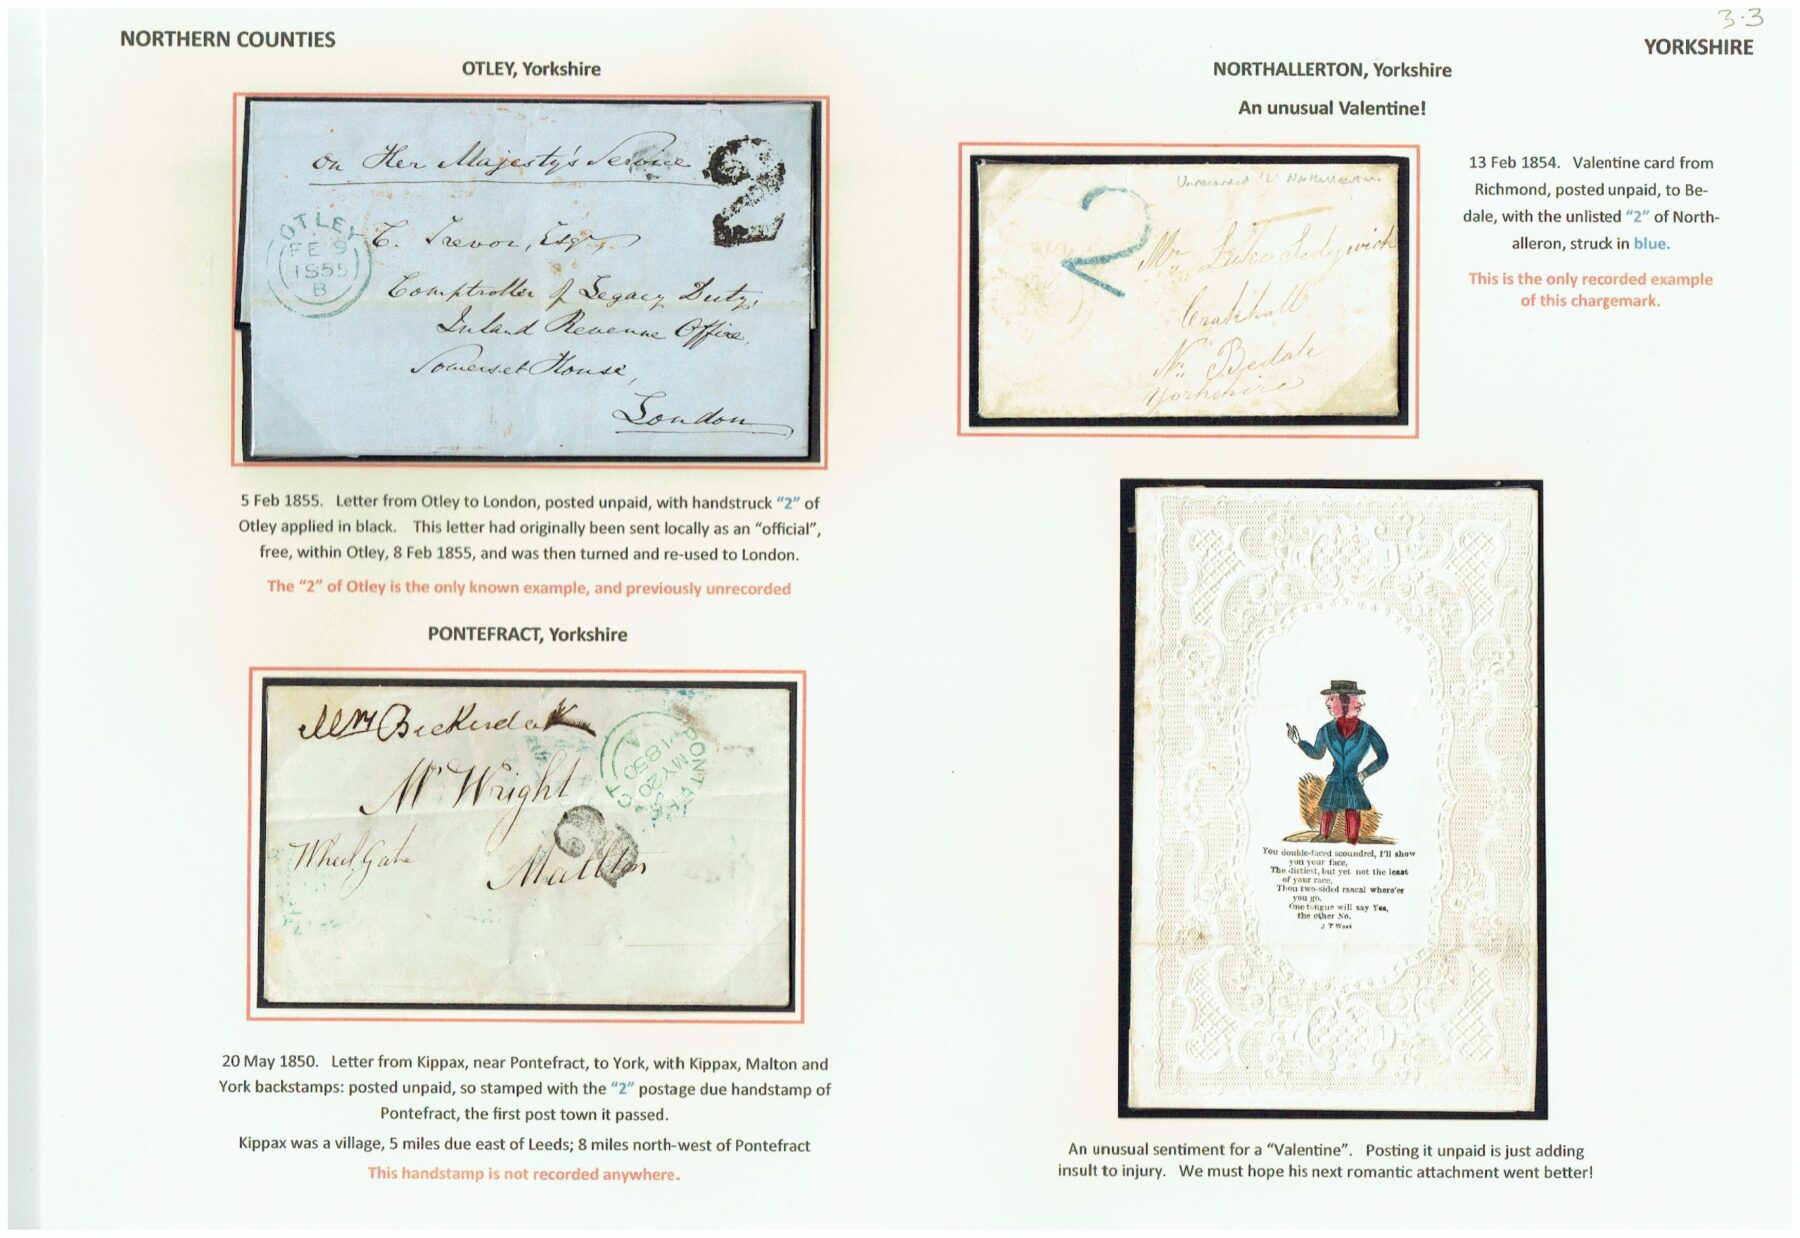 3.3
NORTHERN COUNTIES
YORKSHIRE
OTLEY, Yorkshire
On Her Majesty's Service
2
OTLEY
FE 9
1855
B
C. Trevor, Esqr
Comptroller of Legacy Duty,
Inland Revenue Office,
Somerset House,
London
5 Feb 1855. Letter from Otley to London, posted unpaid, with handstruck “2” of
Otley applied in black. This letter had originally been sent locally as an “official”,
free, within Otley, 8 Feb 1855, and was then turned and re-used to London.
The “2” of Otley is the only known example, and previously unrecorded
PONTEFRACT, Yorkshire
Mrs
Mr Wright
Wheel Gate
Malton
PONTEFRACT
MY 20
1850
A
2
20 May 1850. Letter from Kippax, near Pontefract, to York, with Kippax, Malton and
York backstamps: posted unpaid, so stamped with the “2” postage due handstamp of
Pontefract, the first post town it passed.
Kippax was a village, 5 miles due east of Leeds; 8 miles north-west of Pontefract
This handstamp is not recorded anywhere.
NORTHALLERTON, Yorkshire
An unusual Valentine!
Unrecorded '2' Northallerton.
2
Mr Luke Sedgwick
Crakhall
Nr Bedale
Yorkshire
13 Feb 1854. Valentine card from
Richmond, posted unpaid, to Be-
dale, with the unlisted “2” of North-
alleron, struck in blue.
This is the only recorded example
of this chargemark.
You double-faced scoundrel, I'll show
you your face,
The dirtiest, but yet not the least
of your race,
Thou two-sided rascal where'er
you go,
One tongue will say Yes,
the other No.
J T Wood
An unusual sentiment for a “Valentine”. Posting it unpaid is just adding
insult to injury. We must hope his next romantic attachment went better!